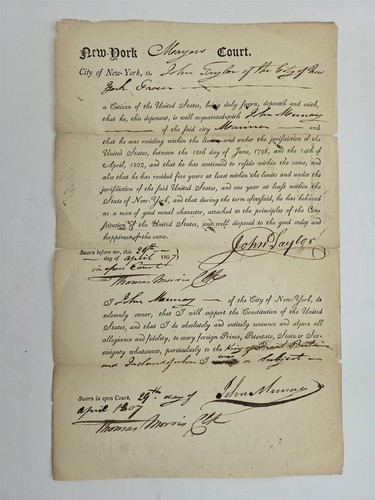 New-York Mayors Court.
City of New-York, ss. John Taylor of the City of New
York Grocer
a Citizen of the United States, being duly sworn, deposeth and saith,
that he, this deponent, is well acquainted with John Murray
of the said city Mariner and
that he was residing within the limits and under the jurisdiction of the
United States, between the 18th day of June, 1798, and the 14th of
April, 1802, and that he has continued to reside within the same, and
also that he has resided five years at least within the limits and under the
jurisdiction of the said United States, and one year at least within the
State of New-York, and that during the term aforesaid, he has behaved
as a man of good moral character, attached to the principles of the Con-
stitution of the United States, and well disposed to the good order and
happiness of the same.
Sworn before me, this 29th
day of april 1807
in open Court
John Taylor
Thomas Morris Clk
I John Murray of the City of New-York, do
solemnly swear, that I will support the Constitution of the United
States, and that I do absolutely and entirely renounce and abjure all
allegiance and fidelity, to every foreign Prince, Potentate, State or Sov-
ereignty whatsoever, particularly to the King of Great Britain
and Ireland of whom I was a subject
Sworn in open Court, 29th day of
april 1807
John Murray
Thomas Morris Clk